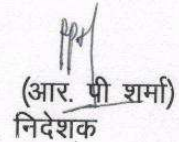 (आर. पी शर्मा)
निदेशक